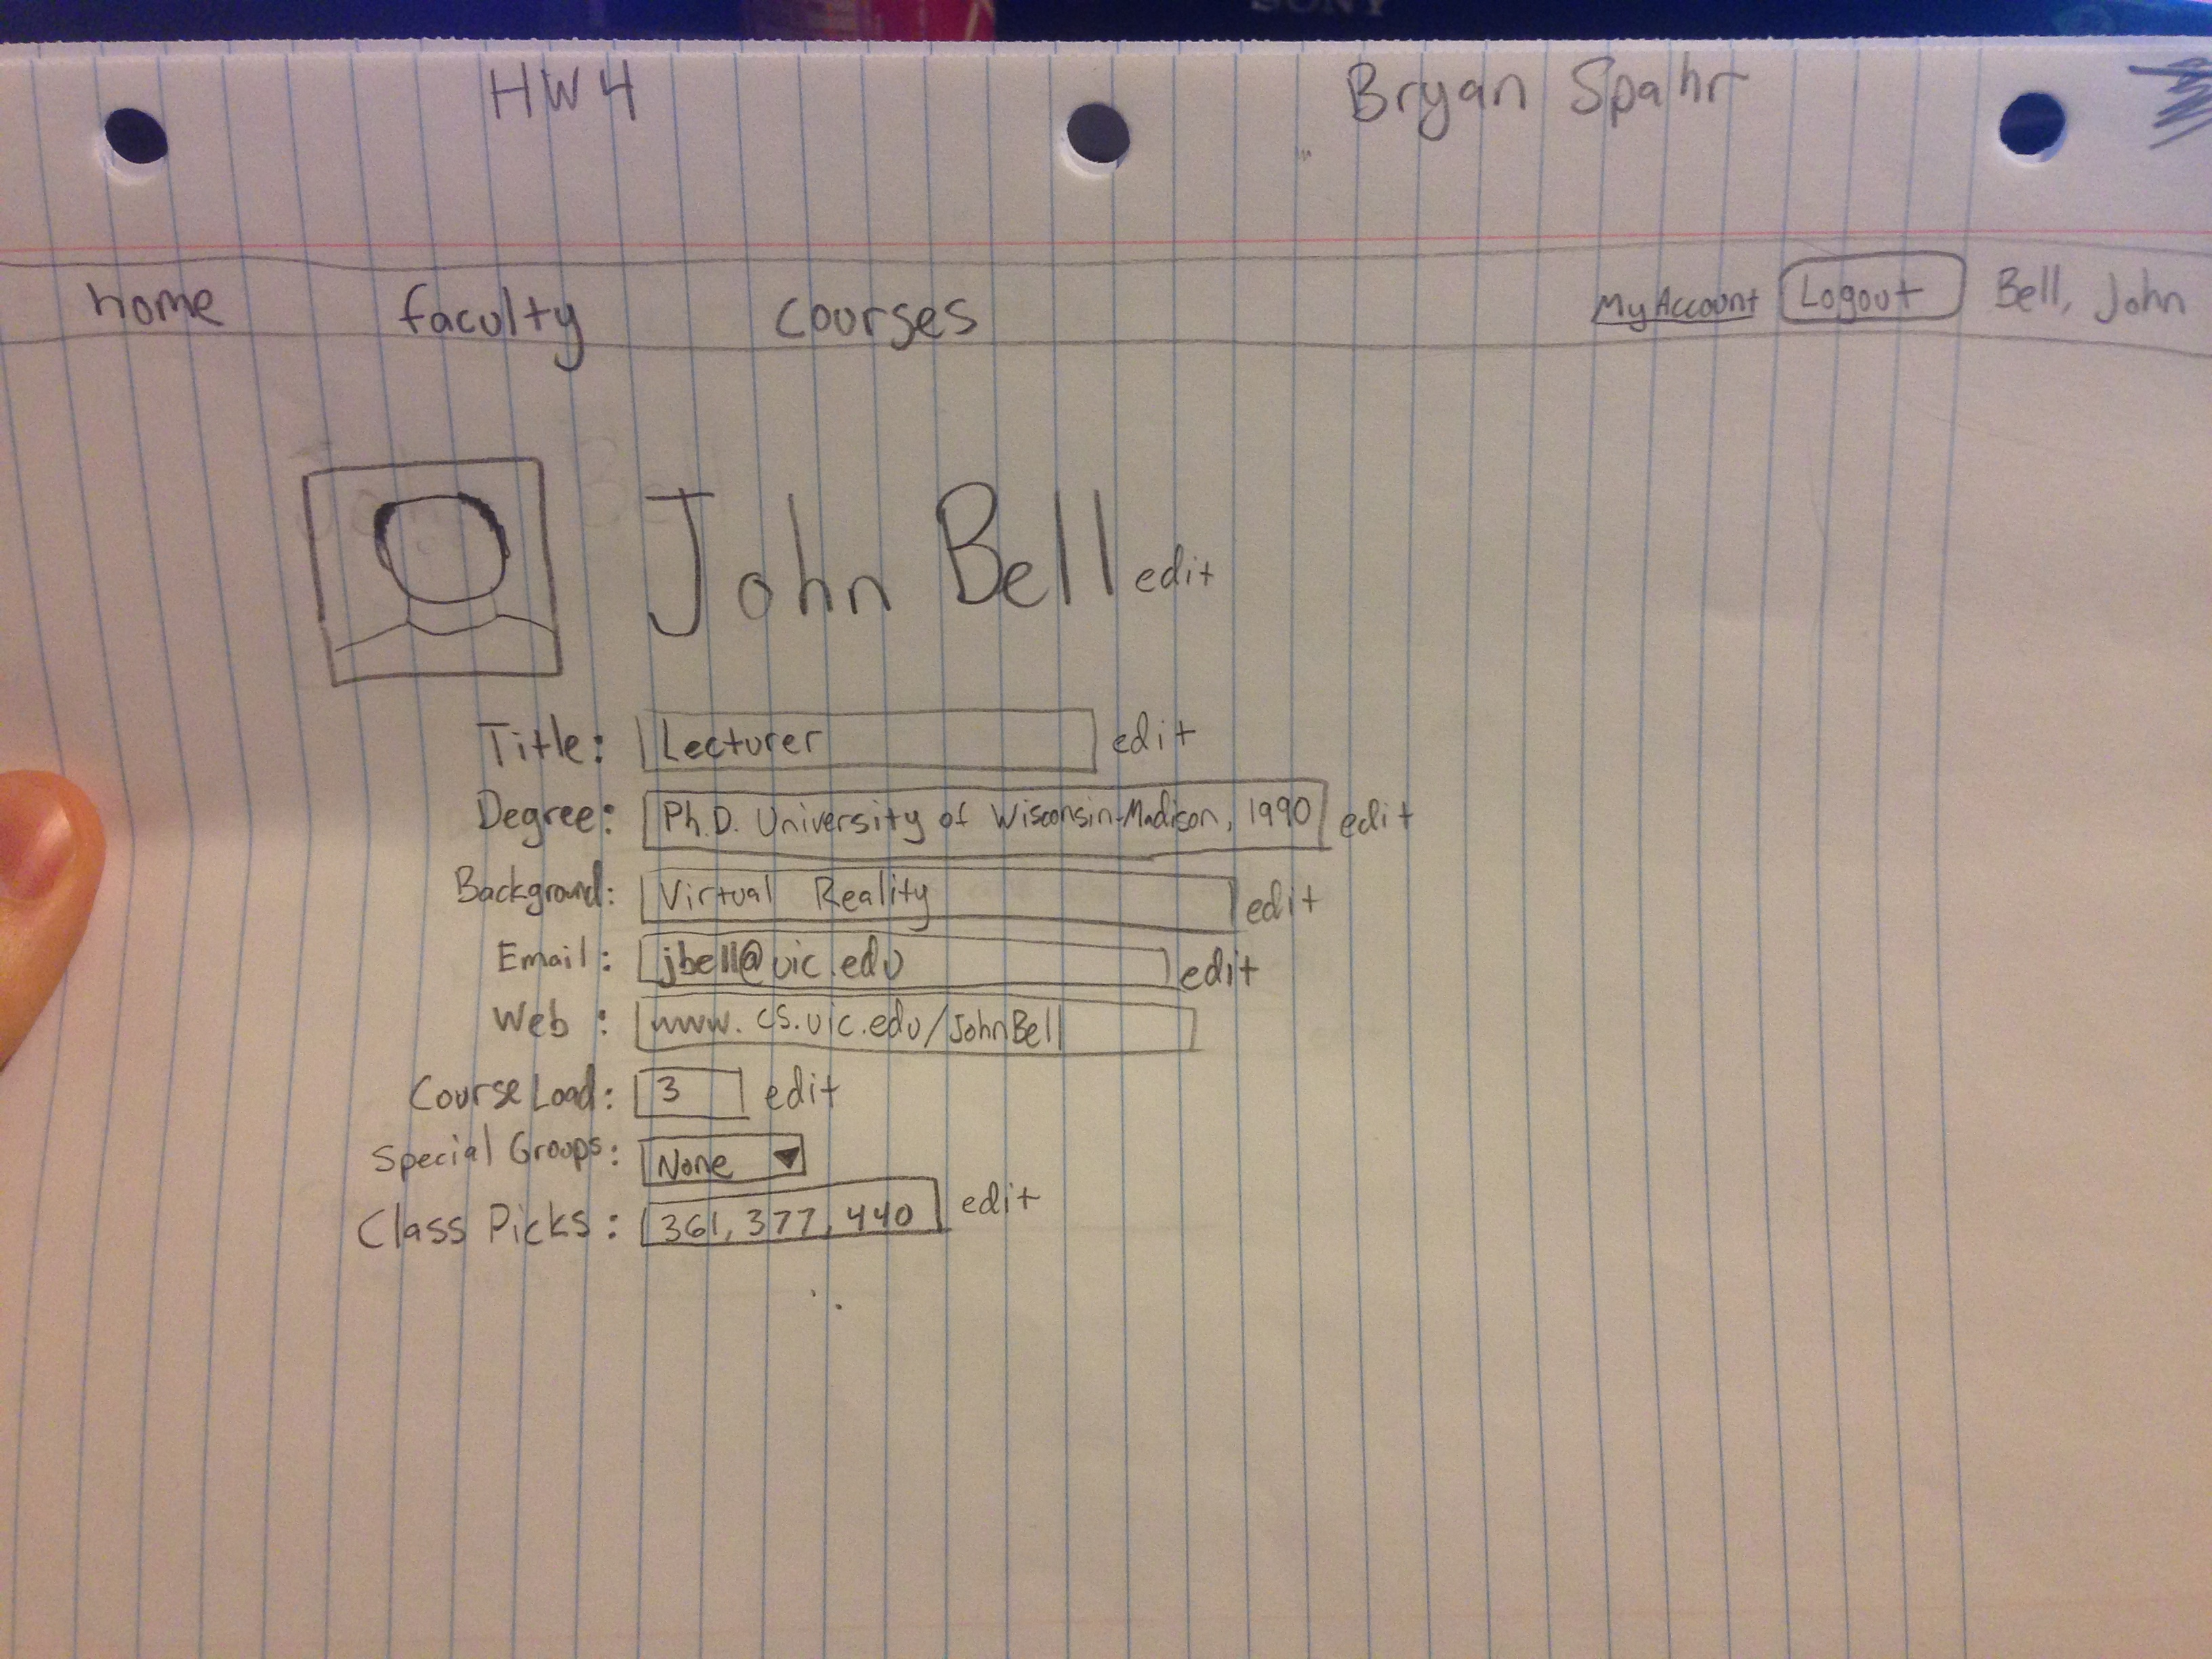 SONY
HW4 Bryan Spahr
home faculty courses My Account Logout Bell, John
John Bell edit
Title: Lecturer edit
Degree: Ph.D. University of Wisconsin-Madison, 1990 edit
Background: Virtual Reality edit
Email: jbell@uic.edu edit
Web : www.cs.uic.edu/JohnBell
Course Load: 3 edit
Special Groups: None
Class Picks: 361, 377, 440 edit